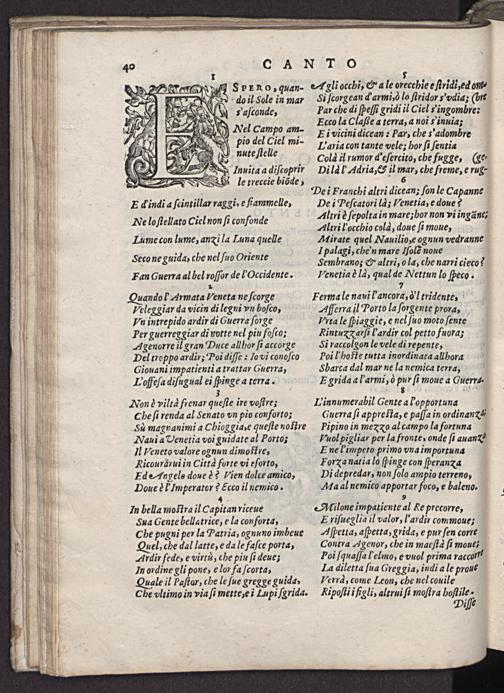 40
CANTO
1
ESPERO, quan-
do il Sole in mar
s'asconde,
Nel Campo am-
pio del Ciel mi-
nute stelle
Inuita a discoprir
le treccie biõde,
E d'indi a scintillar raggi, e fiammelle,
Ne lo stellato Ciel non si confonde
Lume con lume, anzi la Luna quelle
Seco ne guida, che nel suo Oriente
Fan Guerra al bel rossor de l'Occidente.
2
Quando l'Armata Veneta ne scorge
Veleggiar da vicin di legni vn bosco,
Vn intrepido ardir di Guerra sorge
Per guerreggiar di notte nel piu fosco;
Agenorre il gran Duce allhor si accorge
Del troppo ardir; Poi disse: Io vi conosco
Giouani impatienti a trattar Guerra,
L'offesa disugual ei spinge a terra.
3
Non è viltà frenar queste ire vostre;
Che si renda al Senato vn pio conforto;
Sù magnanimi a Chioggia, e queste nostre
Naui a Venetia voi guidate al Porto;
Il Veneto valore ognun dimostre,
Ricourârui in Città forte vi esorto,
Ed Angelo doue è? Vien dolce amico,
Doue è l'Imperator? Ecco il nemico.
4
In bella mostra il Capitan riceue
Sua Gente bellatrice, e la conforta,
Che pugni per la Patria, ognuno imbeue
Quel, che dal latte, e da le fasce porta,
Ardir fede, e virtù, che piu si deue;
In ordine gli pone, e lor fa scorta,
Quale il Pastor, che le sue gregge guida,
Che vltimo in via si mette, e i Lupi sgrida.
5
A gli occhi, & a le orecchie e stridi, ed om-
Si scorgean d'armi, ò lo stridor s'vdia; (bre
Par che di spessi gridi il Ciel s'ingombre:
Ecco la Classe a terra, a noi s'inuia;
E i vicini dicean: Par, che s'adombre
L'aria con tante vele; hor si sentia
Colà il rumor d'esercito, che fugge, (ge.
Di là l'Adria, & il mar, che freme, e rug-
6
De i Franchi altri dicean; son le Capanne
De i Pescatori là; Venetia, e doue?
Altri è sepolta in mare; hor non vi ingãne;
Altri l'occhio colà, doue si moue,
Mirate quel Nauilio, e ognun vedranne
I palagi, che'n mare Isole noue
Sembrano; & altri, o la, che narri cieco?
Venetia è là, qual de Nettun lo speco.
7
Ferma le naui l'ancora, ò 'l tridente,
Afferra il Porto la sorgente prora,
Vrta le spiaggie, e nel suo moto sente
Rintuzzarsi l'ardir col petto fuora;
Si raccolgon le vele di repente,
Poi l'hoste tutta inordinata allhora
Sbarca dal mar ne la nemica terra,
E grida a l'armi, ò pur si moue a Guerra.
8
L'innumerabil Gente a l'opportuna
Guerra si appresta, e passa in ordinanza
Pipino in mezzo al campo la fortuna
Vuol pigliar per la fronte, onde si auanza
E ne l'impeto primo vna importuna
Forza natia lo spinge con speranza
Di depredar, non solo ampio terreno,
Ma al nemico apportar foco, e baleno.
9
Milone impatiente al Re precorre,
E risueglia il valor, l'ardir commoue;
Aspetta, aspetta, grida, e pur sen corre
Contra Agenor, che in maestà si moue;
Poi squassa l'elmo, e vuol prima raccorre
La diletta sua Greggia, indi a le proue
Verrà, come Leon, che nel couile
Riposti i figli, altrui si mostra hostile.
Disse